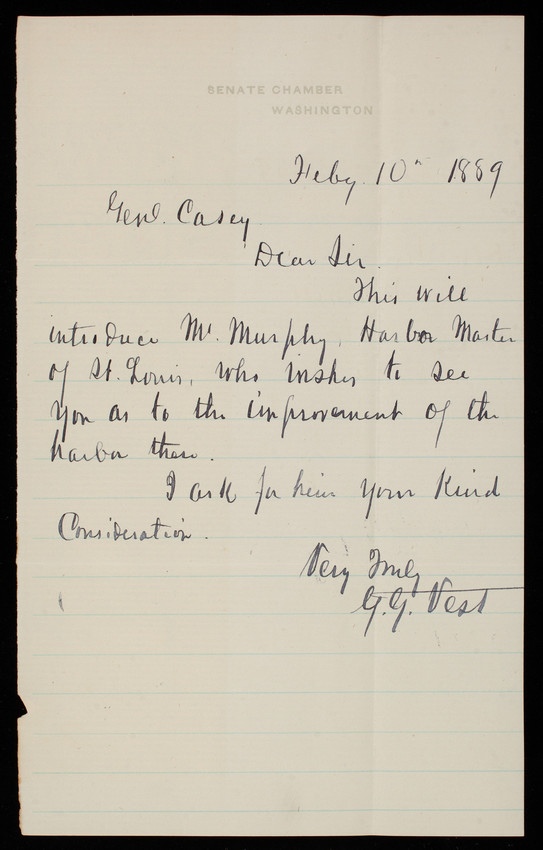 SENATE CHAMBER
WASHINGTON
Feby. 10" 1889
Genl. Casey
Dear Sir.
This will
introduce Mr. Murphy, Harbor Master
of St. Louis, who wishes to see
you as to the improvement of the
harbor there.
I ask for him your kind
Consideration.
Very Truly
G. G. Vest